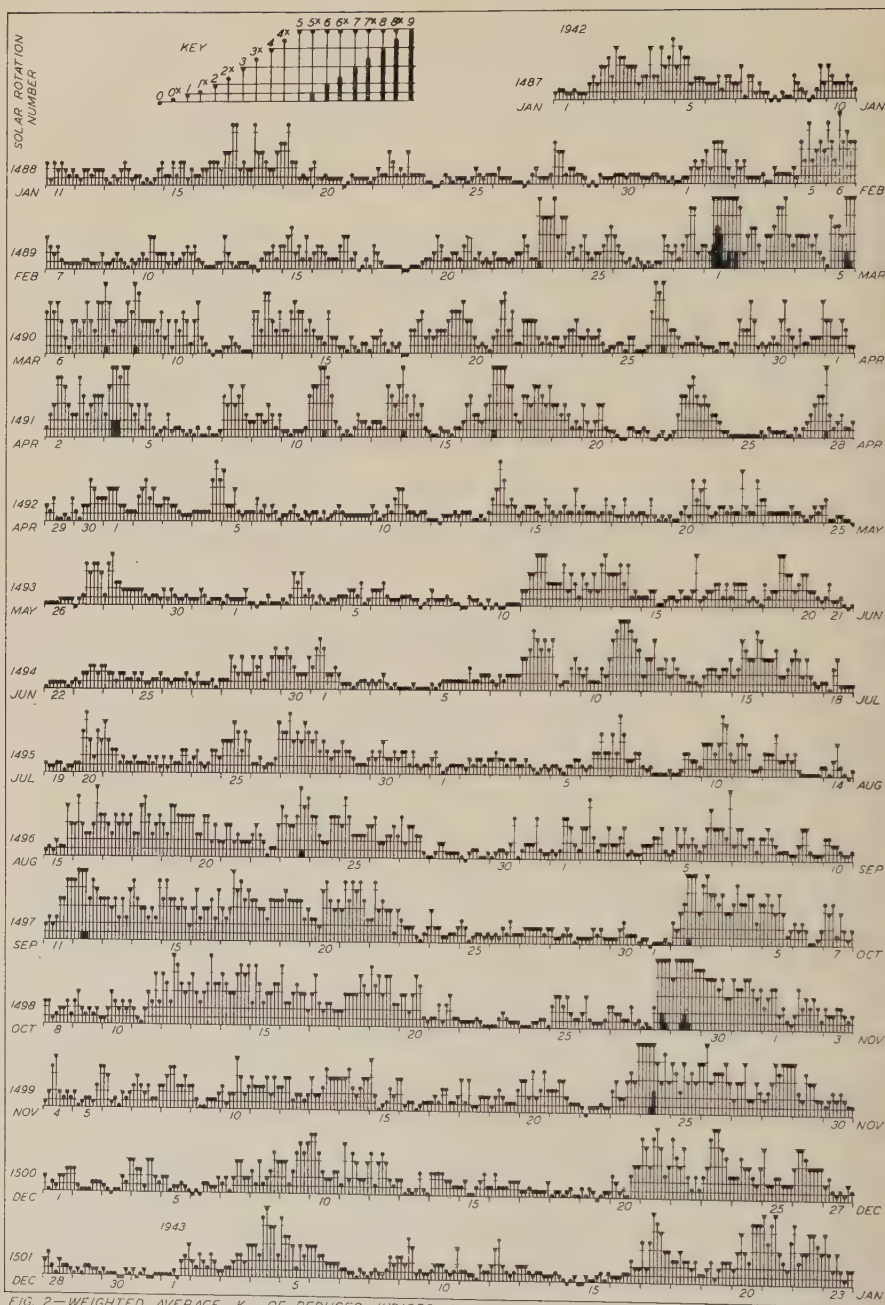 KEY
0 0x 1 1x 2 2x 3 3x 4 4x 5 5x 6 6x 7 7x 8 8x 9
SOLAR ROTATION
NUMBER
1942
1487
JAN 1 5 10 JAN
1488
JAN 11 15 20 25 30 1 5 6 FEB
1489
FEB 7 10 15 20 25 1 5 MAR
1490
MAR 6 10 15 20 25 30 1 APR
1491
APR 2 5 10 15 20 25 28 APR
1492
APR 29 30 1 5 10 15 20 25 MAY
1493
MAY 26 30 1 5 10 15 20 21 JUN
1494
JUN 22 25 30 1 5 10 15 18 JUL
1495
JUL 19 20 25 30 1 5 10 14 AUG
1496
AUG 15 20 25 30 1 5 10 SEP
1497
SEP 11 15 20 25 30 1 5 7 OCT
1498
OCT 8 10 15 20 25 30 1 3 NOV
1499
NOV 4 5 10 15 20 25 30 NOV
1500
DEC 1 5 10 15 20 25 27 DEC
1943
1501
DEC 28 30 1 5 10 15 20 23 JAN
FIG. 2—WEIGHTED AVERAGE, K OF REDUCED INDICES